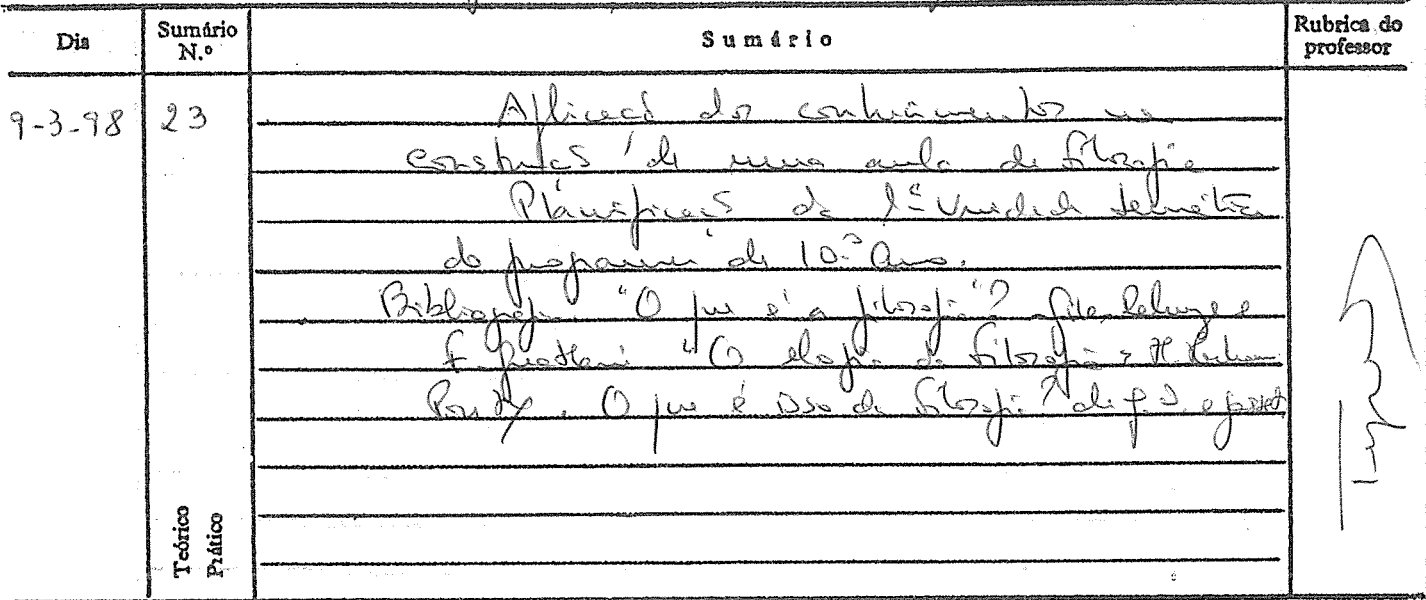 Dia Sumário N.º Sumário Rubrica do professor
9-3-98 23 Aplicação dos conhecimentos na
construção de uma aula de filosofia
Planificação da 1ª Unidade temática
do programa de 10º Ano.
Bibliografia "O que é a filosofia"? Deleuze e
F. Guattari "O elogio da filosofia" M. Merleau
Ponty. O que é isso da filosofia? de
Teórico
Prático